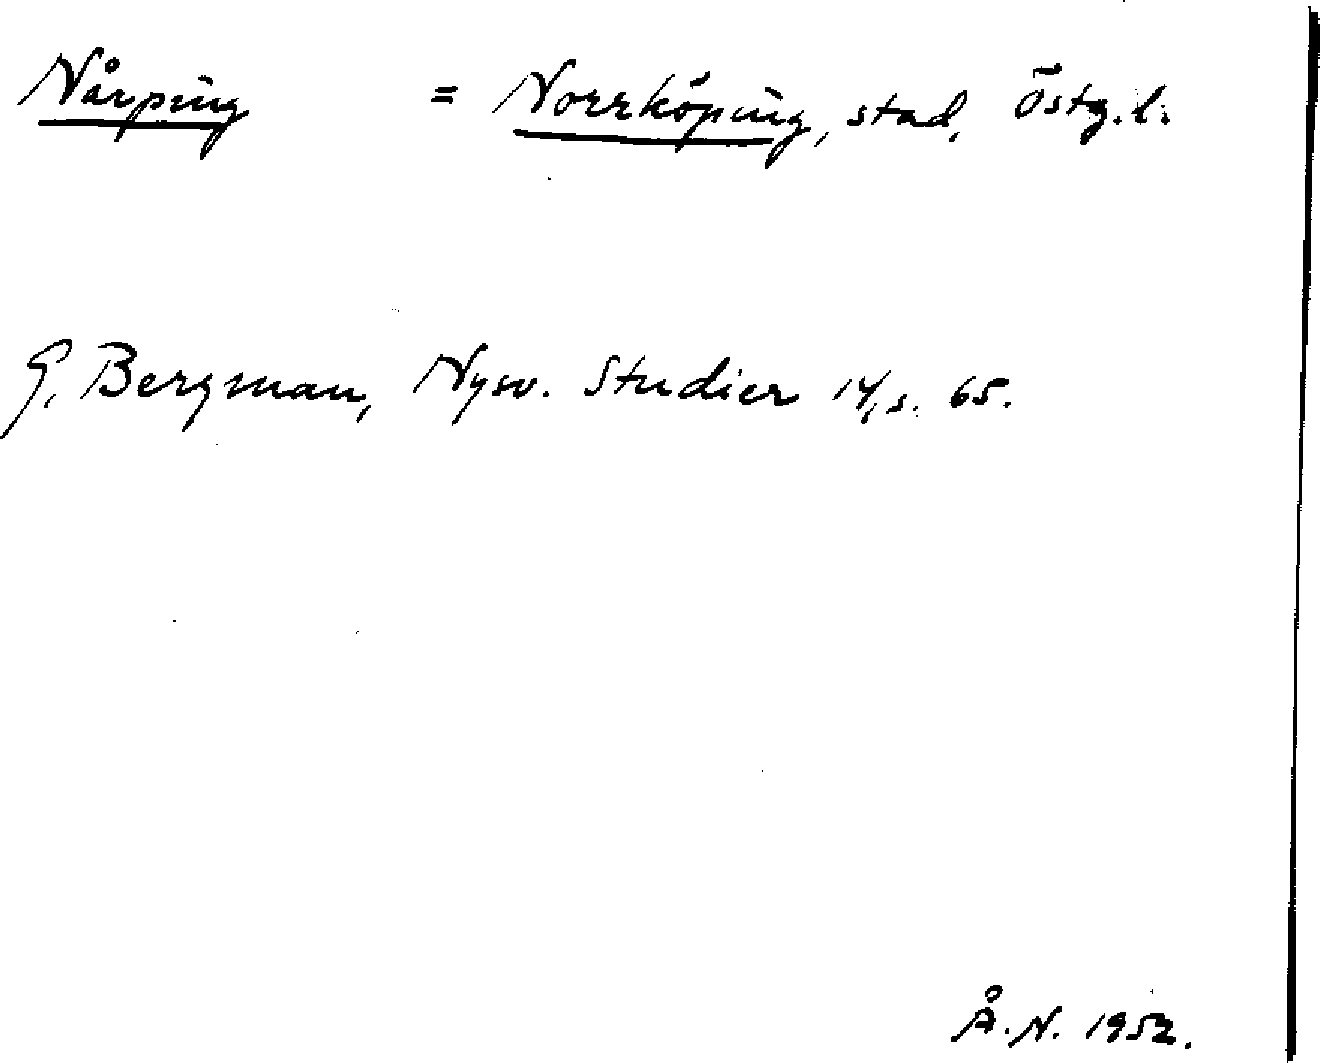 Nårping = Norrköping, stad, Östg.l.
G. Bergman, Nysv. Studier 14, s. 65.
Å.N. 1952.